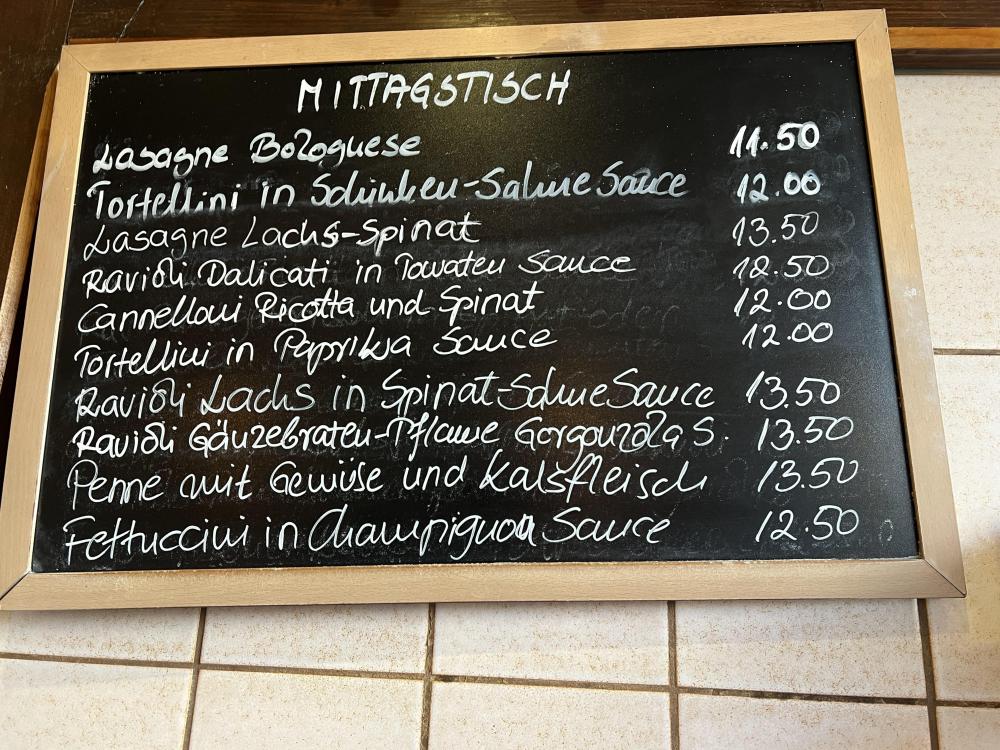 MITTAGSTISCH
Lasagne Bolognese 11.50
Tortellini in Schinken-Sahne Sauce 12.00
Lasagne Lachs-Spinat 13.50
Ravioli Dalicati in Tomaten Sauce 12.50
Cannelloni Ricotta und Spinat 12.00
Tortellini in Paprika Sauce 12.00
Ravioli Lachs in Spinat-Sahne Sauce 13.50
Ravioli Gänzebraten-Pflame Gorgonzola S. 13.50
Penne mit Gemüse und Kalsfleisch 13.50
Fettuccini in Champignon Sauce 12.50